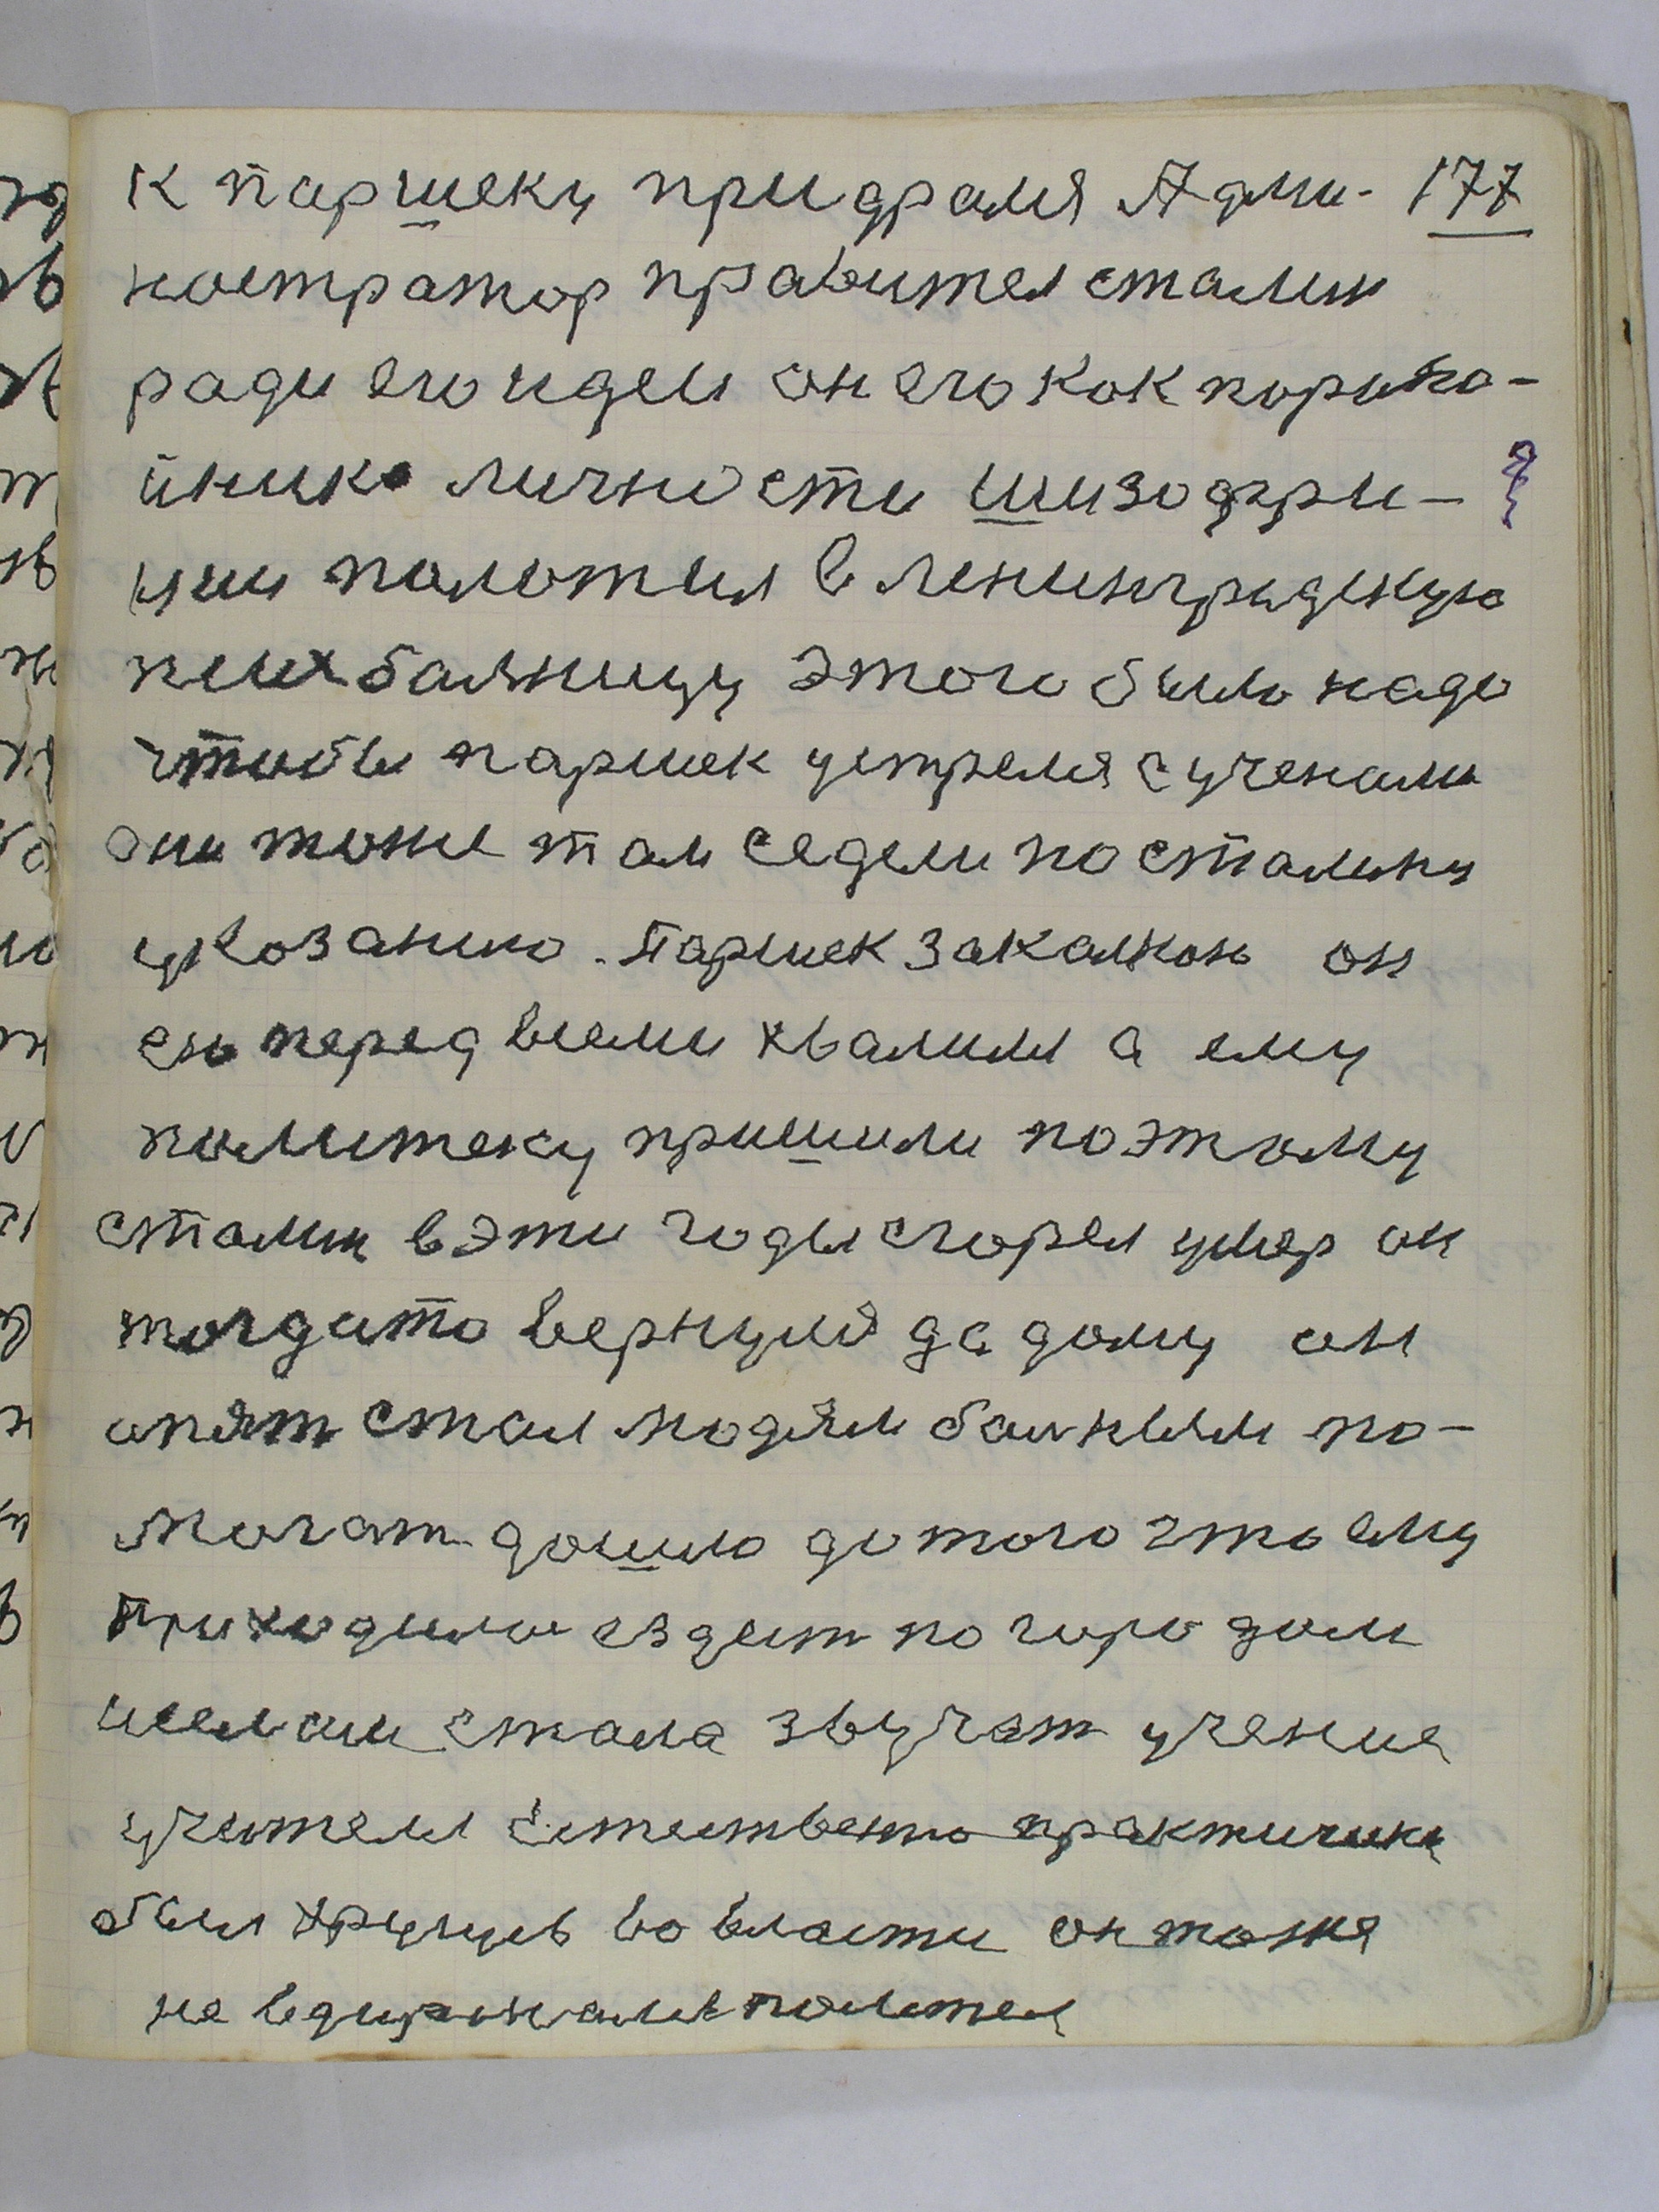 к паршеку придрался Адми- 177
ностратор правител сталин
ради его идеи он его как
иника личности шизофри-
нии положил в ленинградскую
псих балницу этого было надо
чтобы паршек устрелся с учеными
они тоже там седели по сталину
указанию. паршек закалкою он
ею перед всеми хвалился а ему
политеку пришили поэтому
сталин в эти годы сгорел умер он
тогдато вернулся да дому он
опят стал людям балным по-
могат дошло до того что ему
приходилос ездит по городам
и селам стала звучат учение
учителя Естествено практичике
был хрущев во власти он тоже
не вдиржался